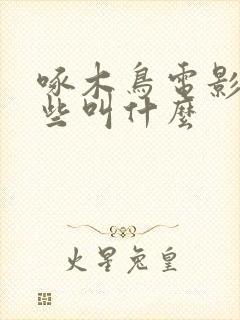 啄木鸟電影
些叫什麼
火星兔皇